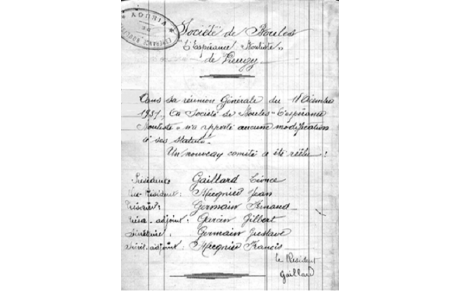 AGORHA
Société de Boules
L'Espérance Bouliste
de Rungy
Dans sa réunion Générale du 1 Décembre
1937 La Société de Boules l'Espérance
Bouliste n'a apporté aucune modification
à ses statuts.
Un nouveau comité a été réélu :
Président : Gaillard Léonce
Vice-Président : Mugnier Jean
Trésorier : Germain Armand
Trés. adjoint : Gilbert
Secrétaire : Germain Gustave
Secrét. adjoint : Mugnier Francis
Le Président
Gaillard